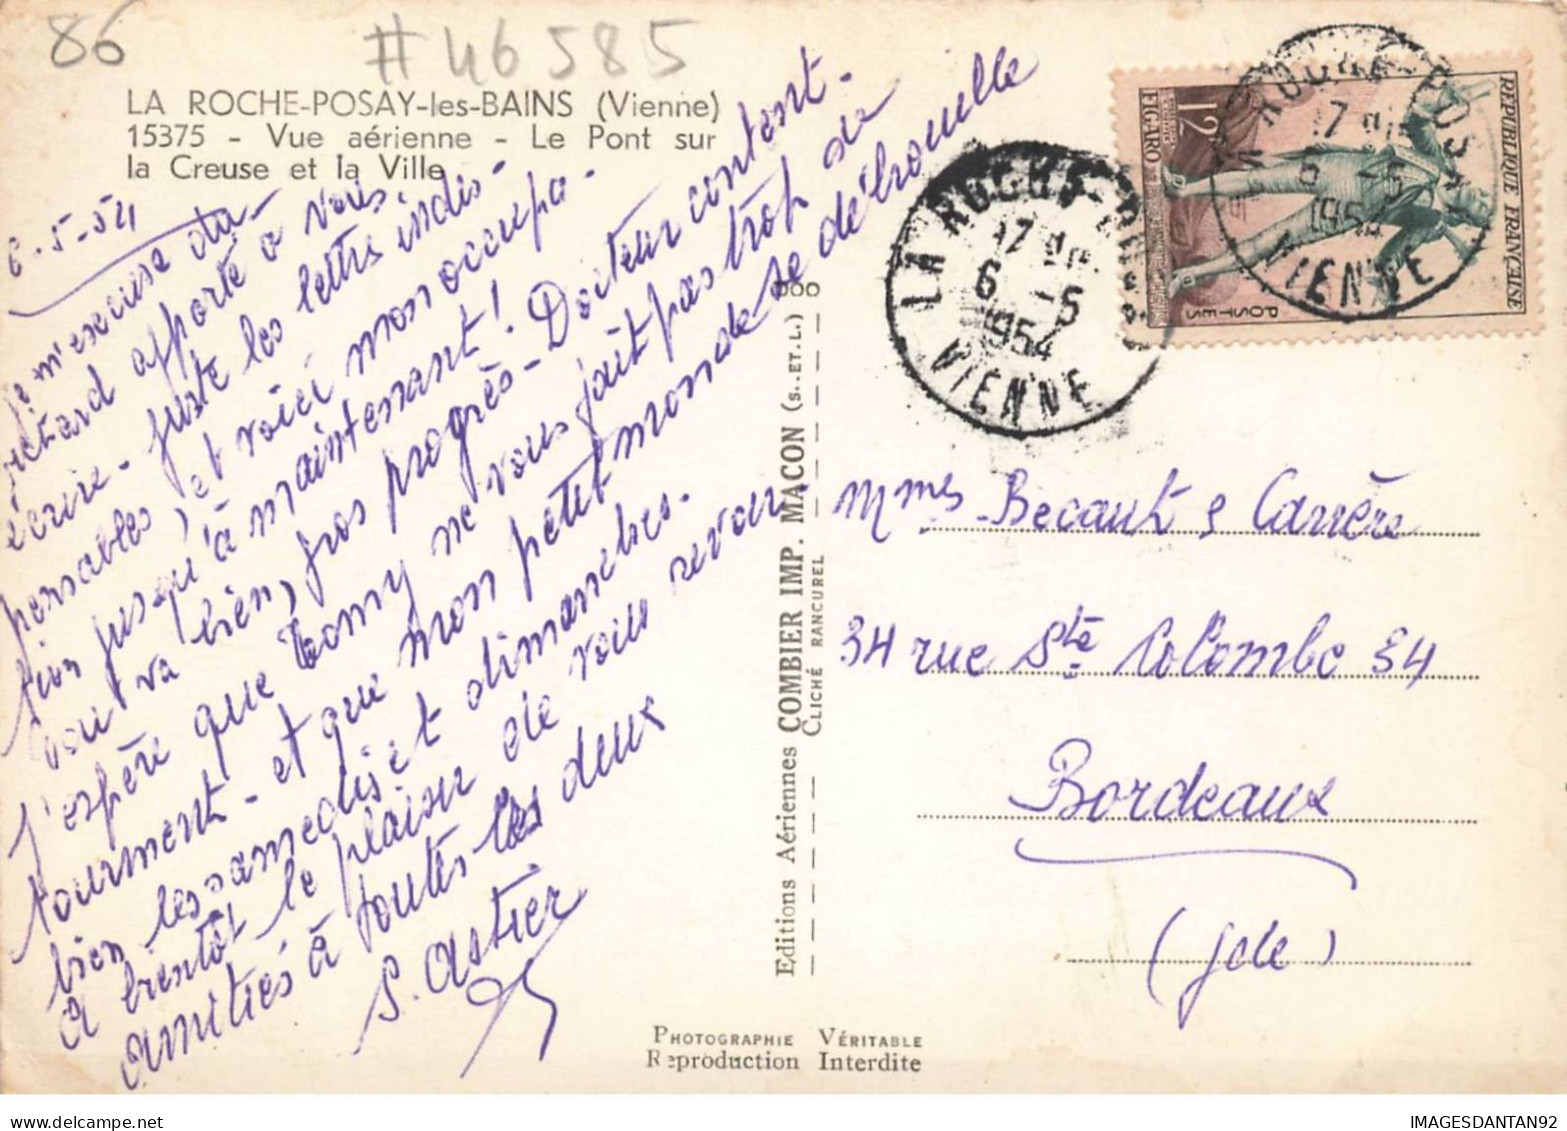 86
#46585
LA ROCHE-POSAY-les-BAINS (Vienne)
15375 - Vue aérienne - Le Pont sur
la Creuse et la Ville
6-5-54
Je m'excuse du
retard apporté à vous
écrire - juste les lettres indis-
pensables, et voici mon occupa-
tion jusqu'à maintenant !
tout va bien, gros progrès - Docteur content -
J'espère que Tomy ne vous fait pas trop de
tourment - et que mon petit monde se détrouille
bien les samedis et dimanches.
à bientôt le plaisir de vous revoir
amitiés à toutes les deux
S. Astier
Editions Aériennes COMBIER IMP. MACON (S. ET. L.)
CLICHÉ RANCUREL
PHOTOGRAPHIE VÉRITABLE
Reproduction Interdite
LA ROCHE-POSAY
17
6 -5
1954
VIENNE
REPUBLIQUE FRANÇAISE
POSTES
12F
FIGARO
LA ROCHE-POSAY
17
6 -5
1954
VIENNE
Mmes Becaut & Carrère
34 rue Ste Colombe 34
Bordeaux
(Gde)
IMAGESDANTAN92